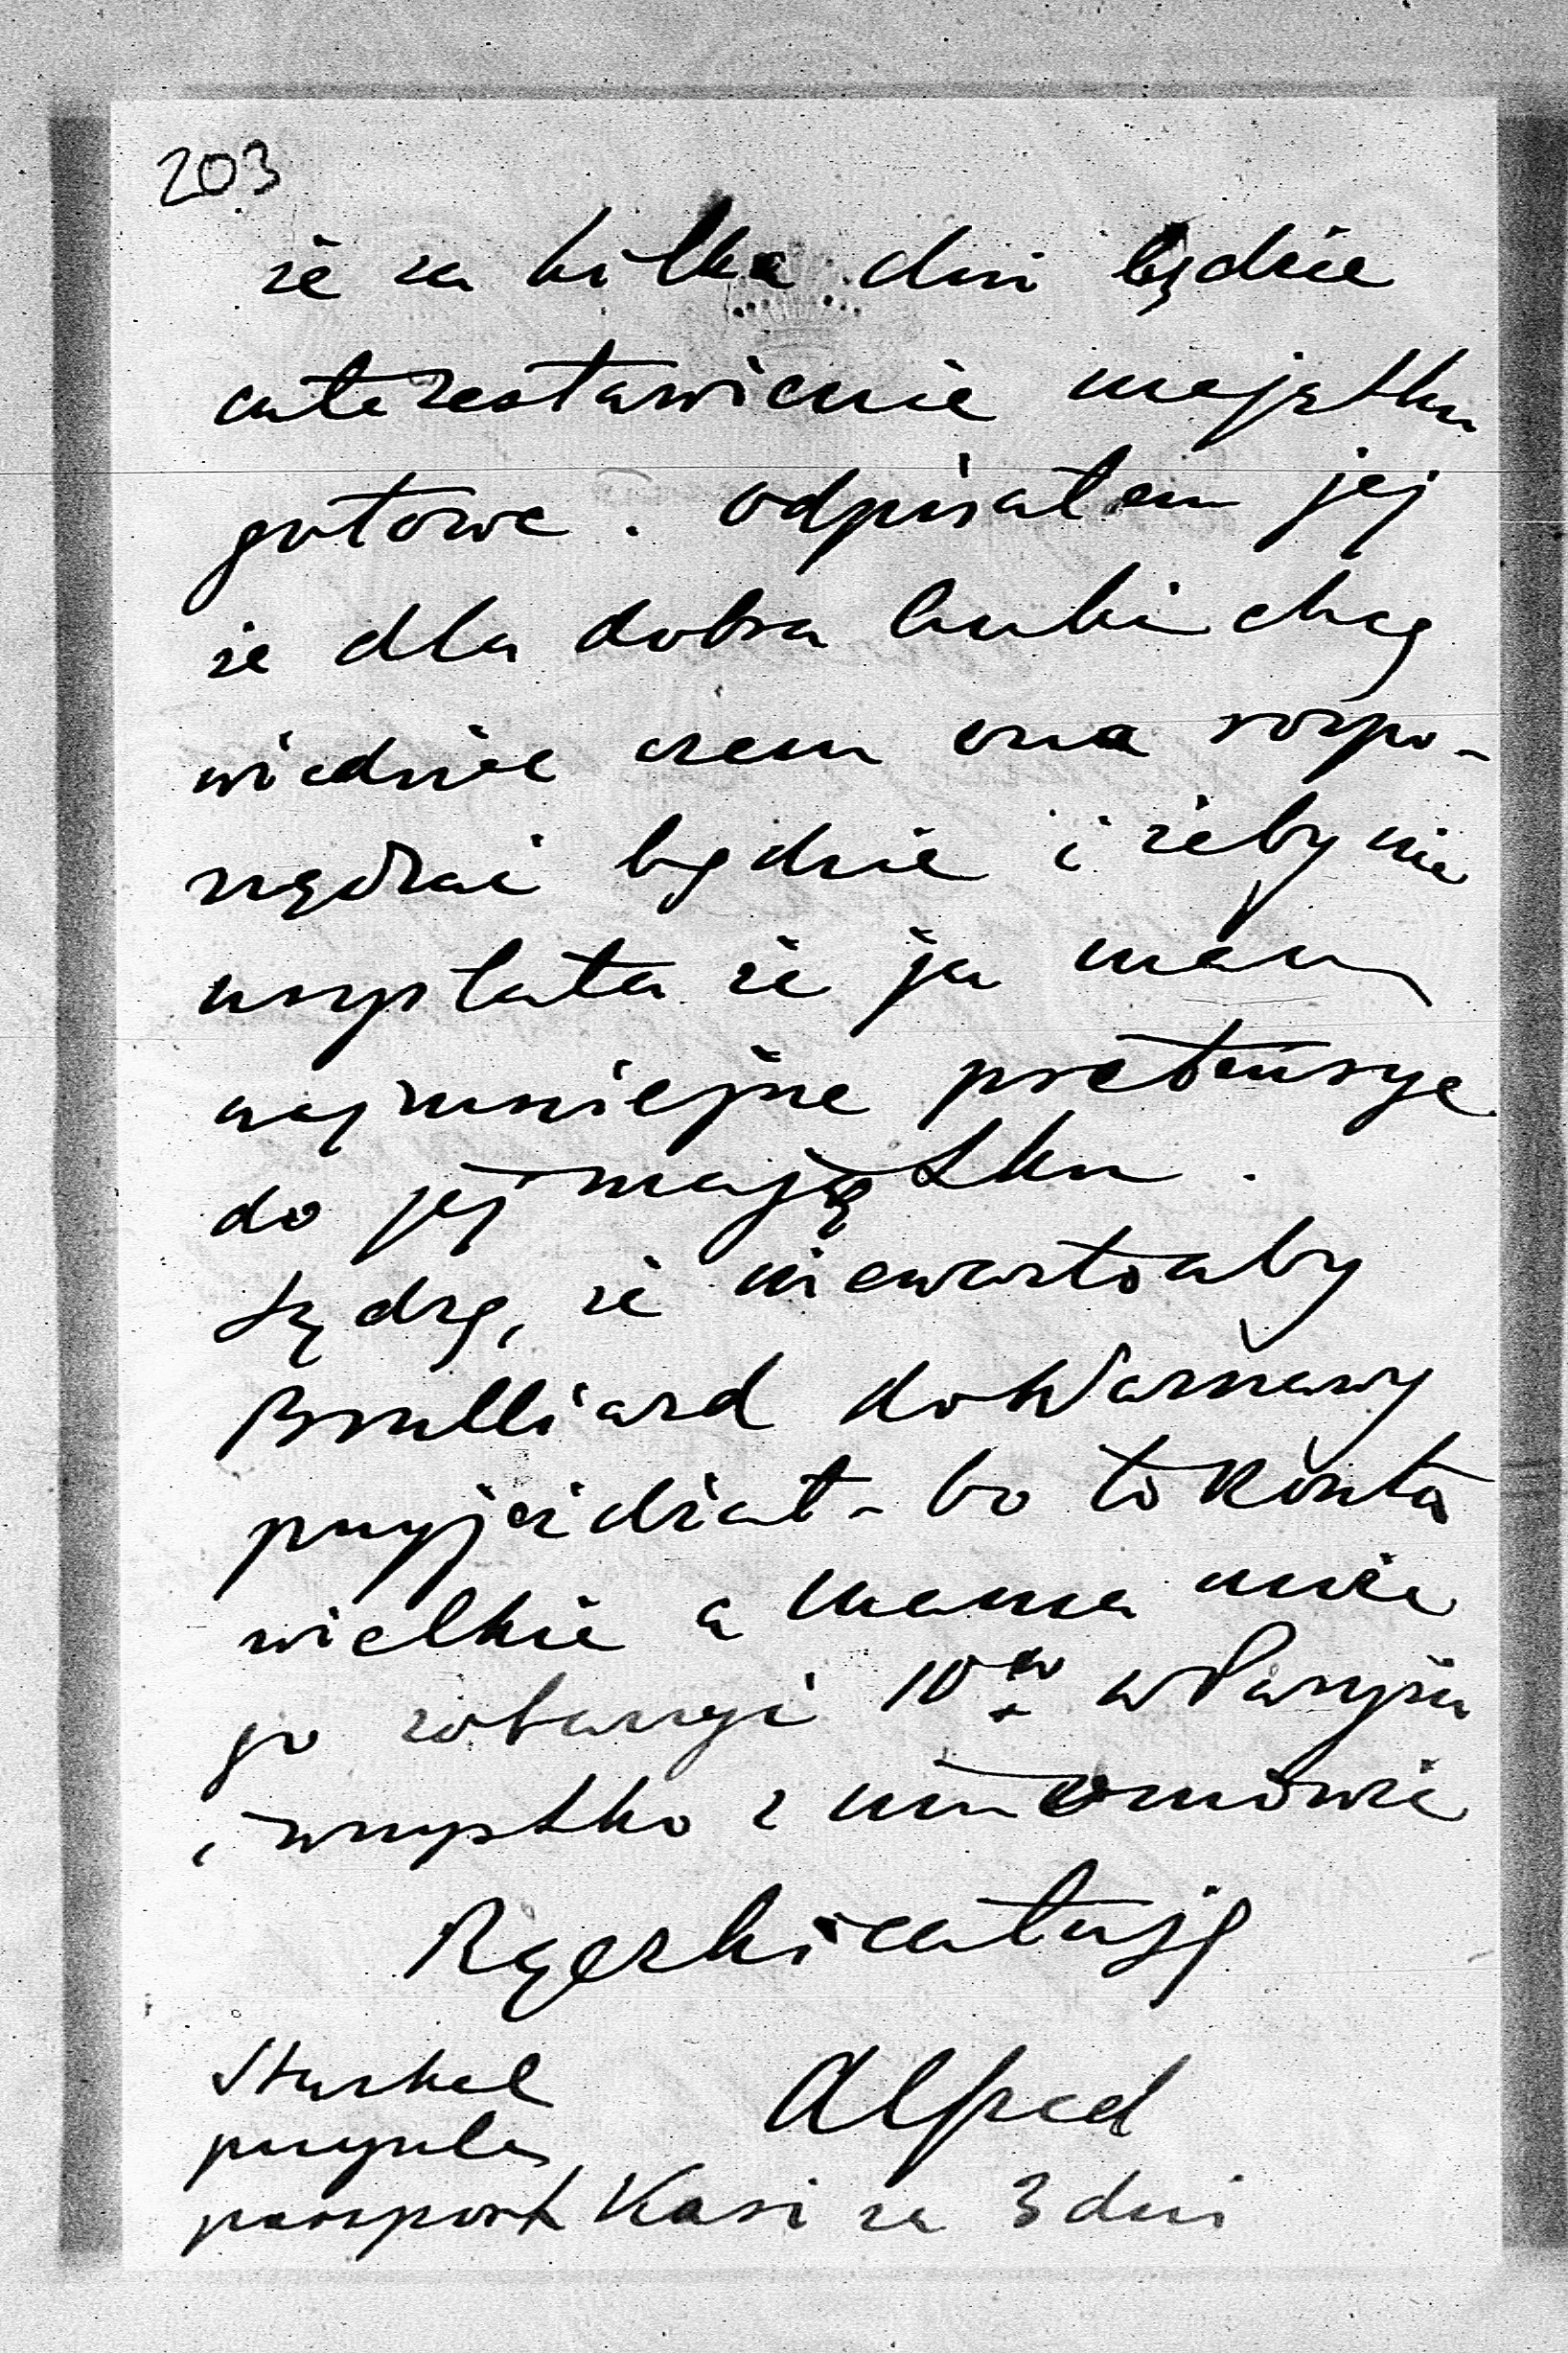 203
że za kilka dni będzie
całe zestawienie majątku
gotowe. Odpisałem jej
że dla dobra Bubi chcę
wiedzieć czem ona rozpo-
rządzać będzie i żeby nie
myślała że ja mam
najmniejsze pretensye
do jej majątku.
Sądzę, że niewarto aby
Brulliard do Warszawy
przyjeżdżał - bo to koszta
wielkie a mama może
go zobaczyć 10go w Paryżu
i wszystko z nim omówić
Rączki całuję
Alfred
przyszle
paszport Kasi za 3 dni